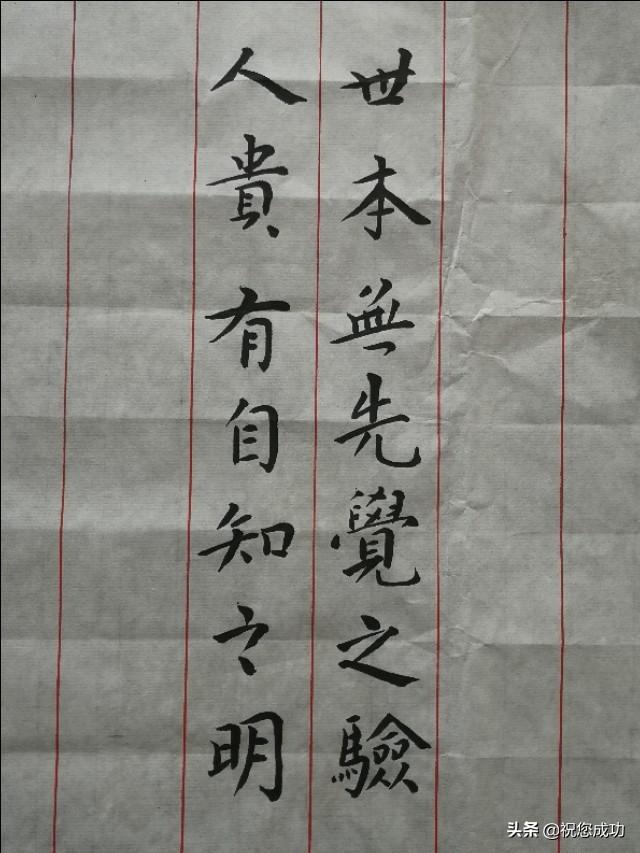 世本無先覺之驗
人貴有自知之明
头条 @祝您成功